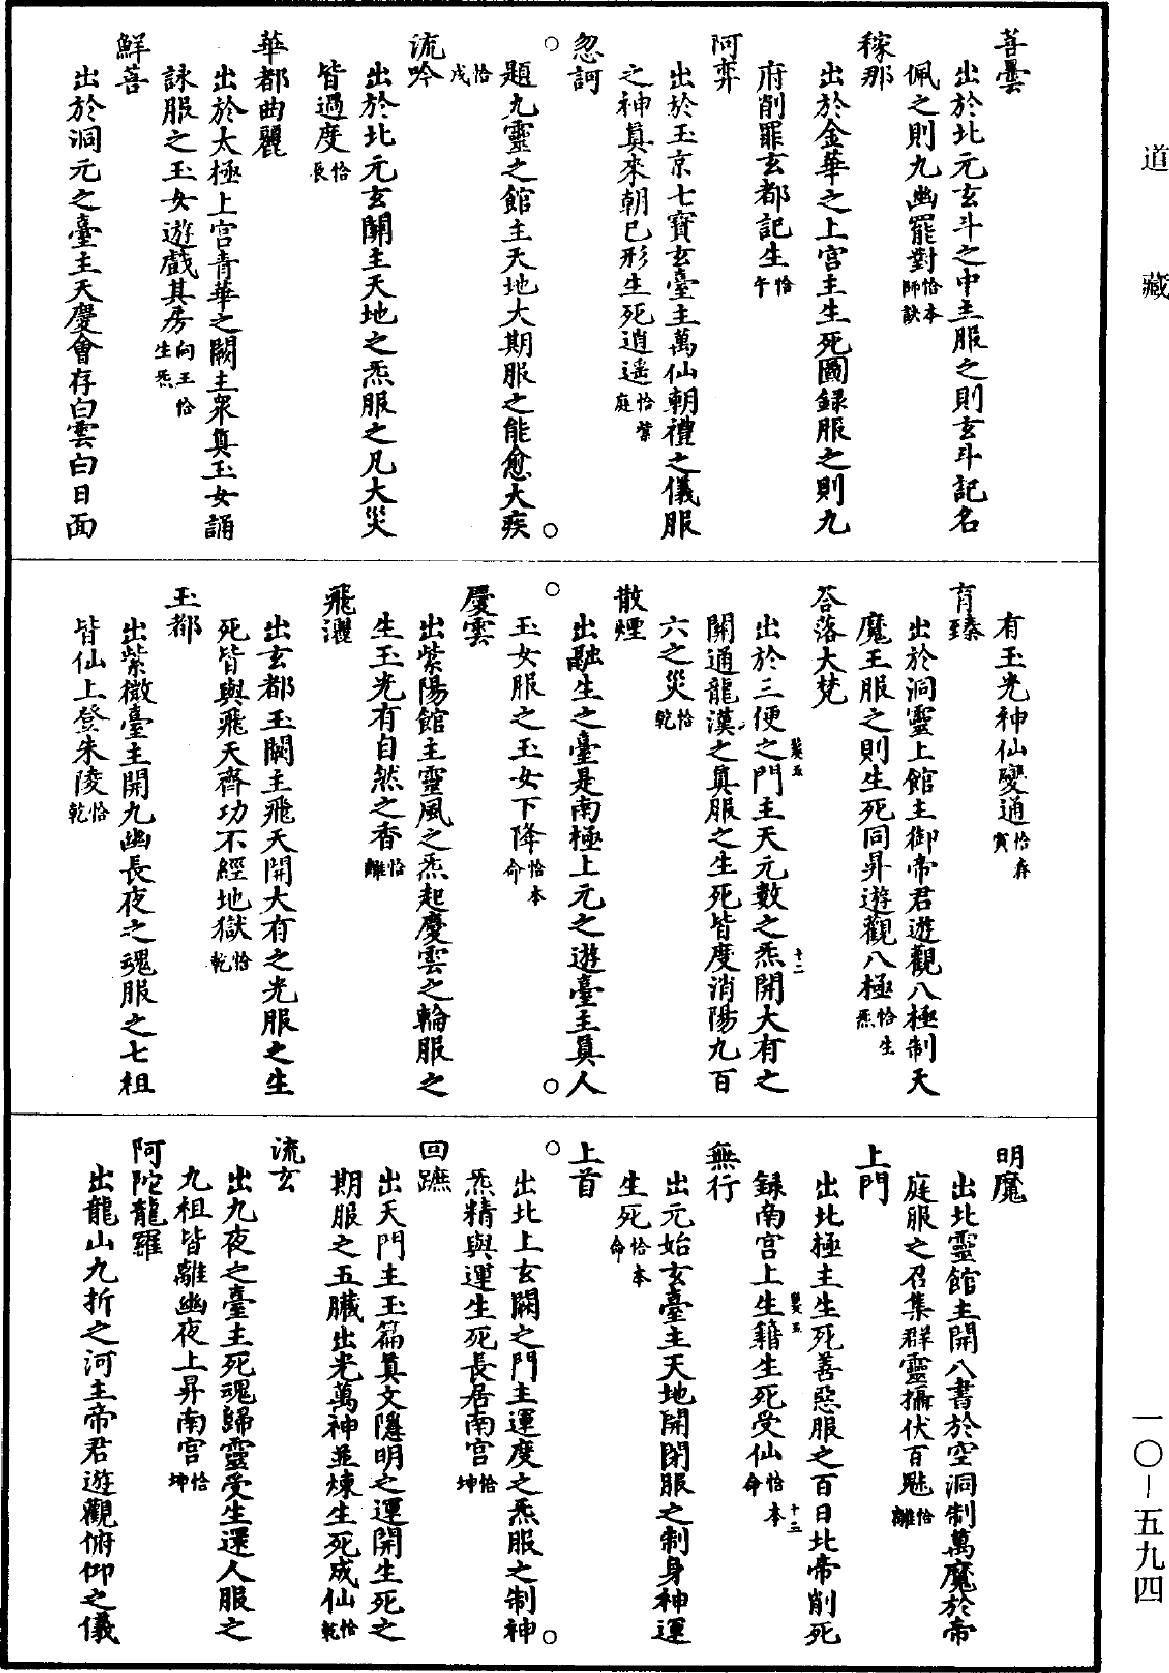 道藏
菩曇
出於北元玄斗之中主服之則玄斗記名
佩之則九幽罷對恰本師訣
稼那
出於金華之上宮主生死圖録服之則九
府削罪玄都記生恰午
阿弈
出於玉京七寶玄臺主萬仙朝禮之儀服
之神真來朝已形生死逍遥恰紫庭
忽訶
題九靈之館主天地大期服之能愈大疾
恰戌
流吟
出於北元玄關主天地之炁服之凡大災
皆過度恰辰
華都曲麗
出於太極上宮青華之闕主衆真玉女誦
詠服之玉女遊戲其房向王恰生炁
鮮菩
出於洞元之臺主天慶會存白雲白日面
有玉光神仙變通恰存寅
育臻
出於洞靈上館主御帝君遊觀八極制天
魔王服之則生死同昇遊觀八極恰生炁
荅落大梵
出於三便之門主天元數之炁開大有之
關通龍漢之真服之生死皆度消陽九百
六之災恰乾
散煙
出融生之臺是南極上元之遊臺主真人
玉女服之玉女下降恰本命
慶雲
出紫陽館主靈風之炁起慶雲之輪服之
生玉光有自然之香恰離
飛灑
出玄都玉闕主飛天開大有之光服之生
死皆與飛天齊功不經地獄恰乾
玉都
出紫微臺主開九幽長夜之魂服之七祖
皆仙上登朱陵恰乾
明魔
出北靈館主開八書於空洞制萬魔於帝
庭服之召集群靈攝伏百魁恰離
上門
出北極主生死善惡服之百日北帝削死
録南宮上生籍生死受仙恰本命
無行
出元始玄臺主天地開閉服之制身神運
生死恰本命
上首
出北上玄闕之門主運度之炁服之制神
炁精與運生死長居南宮恰坤
回蹠
出天門主玉篇真文隱明之運開生死之
期服之五臟出光萬神並煉生死成仙恰乾
流玄
出九夜之臺主死魂歸靈受生還人服之
九祖皆離幽夜上昇南宮恰坤
阿陀龍羅
出龍山九折之河主帝君遊觀俯仰之儀
一〇－五九四